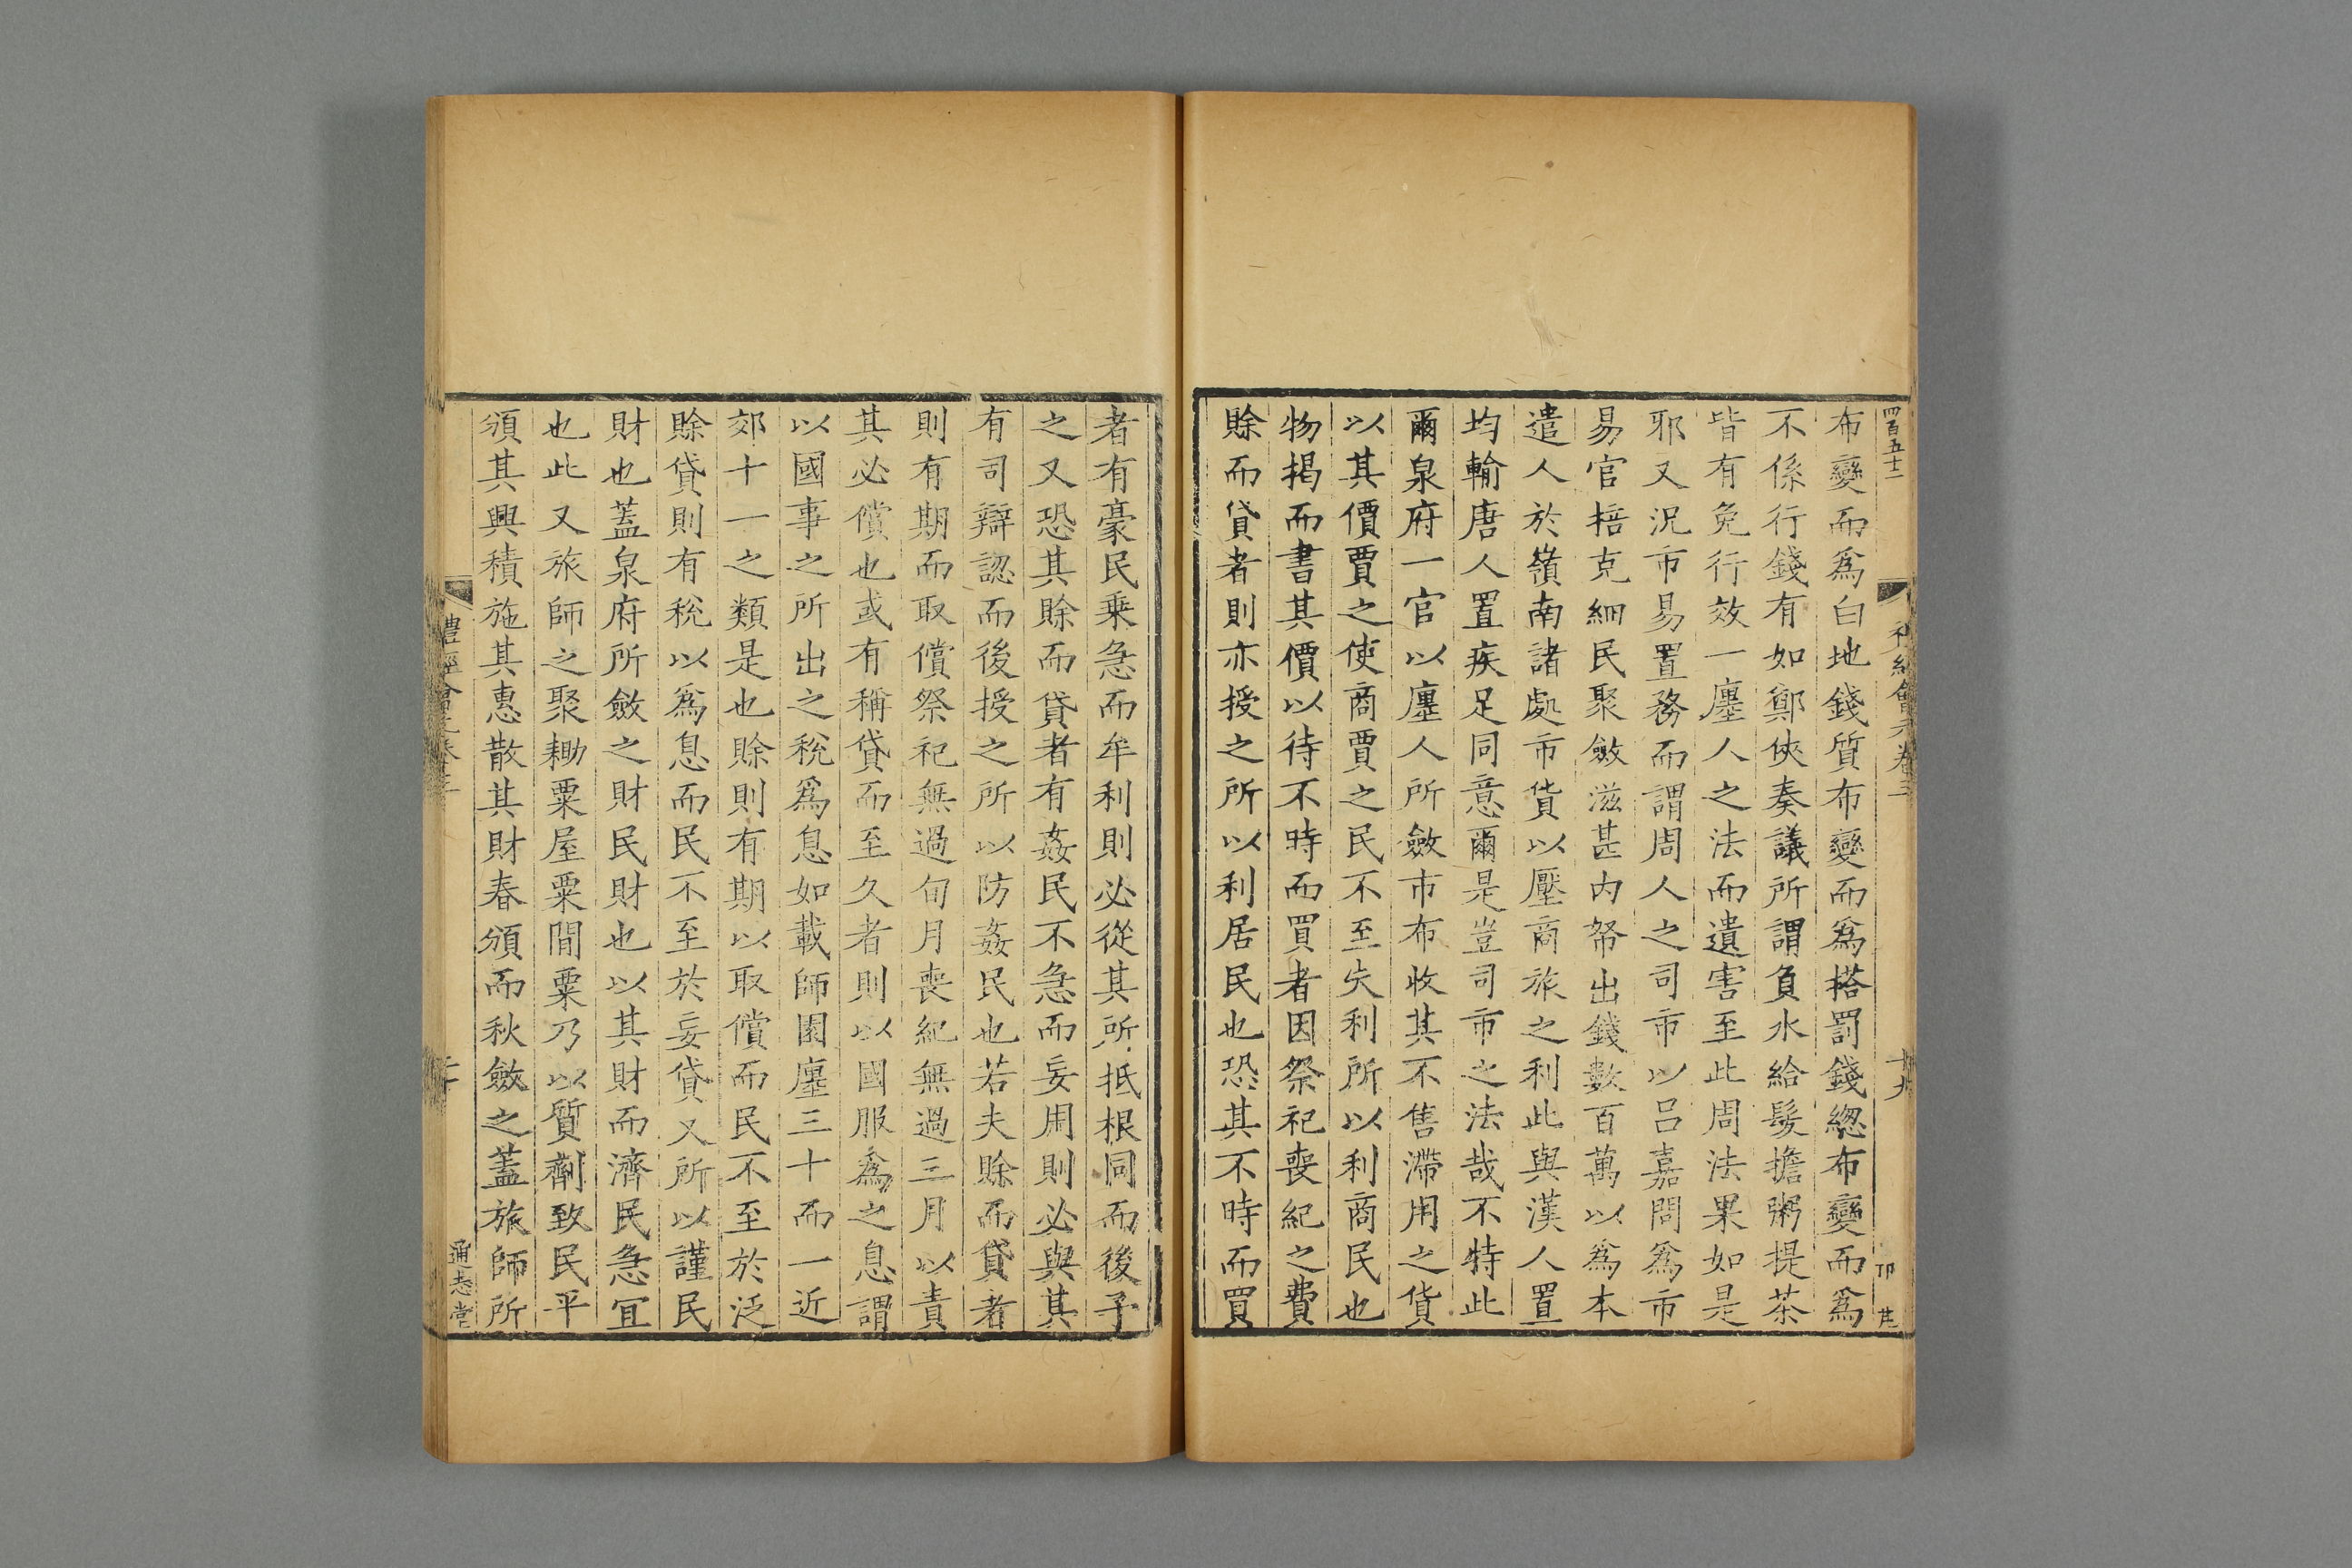 四百五十二
禮經會元卷三
十九
布變而爲白地錢質布變而爲搭罰錢緫布變而爲
不係行錢有如鄭俠奏議所謂負水給髮擔粥提茶
皆有免行效一廛人之法而遺害至此周法果如是
耶又況市易置務而謂周人之司市以呂嘉問爲市
易官掊克細民聚斂滋甚内帑出錢數百萬以爲本
遣人於嶺南諸處市貨以壓商旅之利此與漢人置
均輸唐人置疾足同意爾是豈司市之法哉不特此
爾泉府一官以廛人所斂市布收其不售滯用之貨
以其價賈之使商賈之民不至失利所以利商民也
物揭而書其價以待不時而買者因祭祀喪紀之費
賖而貸者則亦授之所以利居民也恐其不時而買
者有豪民乗急而牟利則必從其所抵根同而後予
之又恐其賖而貸者有姦民不急而妄用則必與其
有司辯認而後授之所以防姦民也若夫賖而貸者
則有期而取償祭祀無過旬月喪紀無過三月以責
其必償也或有稱貸而至久者則以國服爲之息謂
以國事之所出之稅爲息如載師園廛三十而一近
郊十一之類是也賖則有期以取償而民不至於泛
賖貸則有稅以爲息而民不至於妄貸又所以謹民
財也蓋泉府所斂之財民財也以其財而濟民急宜
也此又旅師之聚耡粟屋粟間粟乃以質劑致民平
頒其興積施其惠散其財春頒而秋斂之蓋旅師所
禮經會元卷三
二十
通志堂